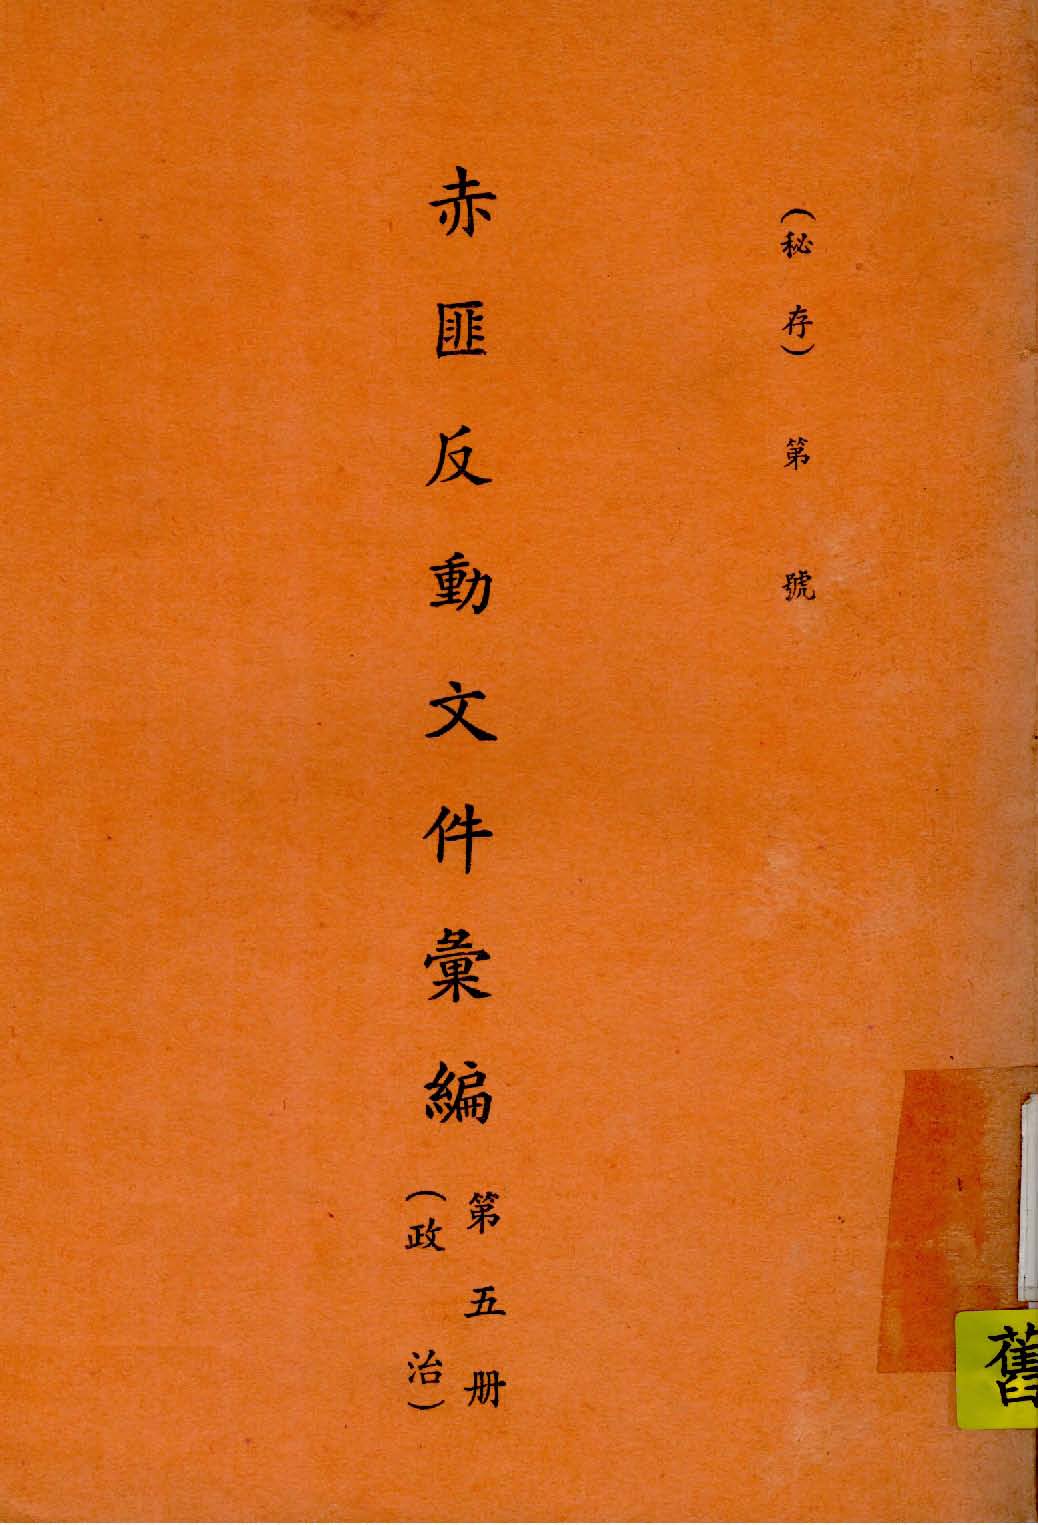 (秘存)第號
赤匪反動文件彙編
第五册
(政治)
舊